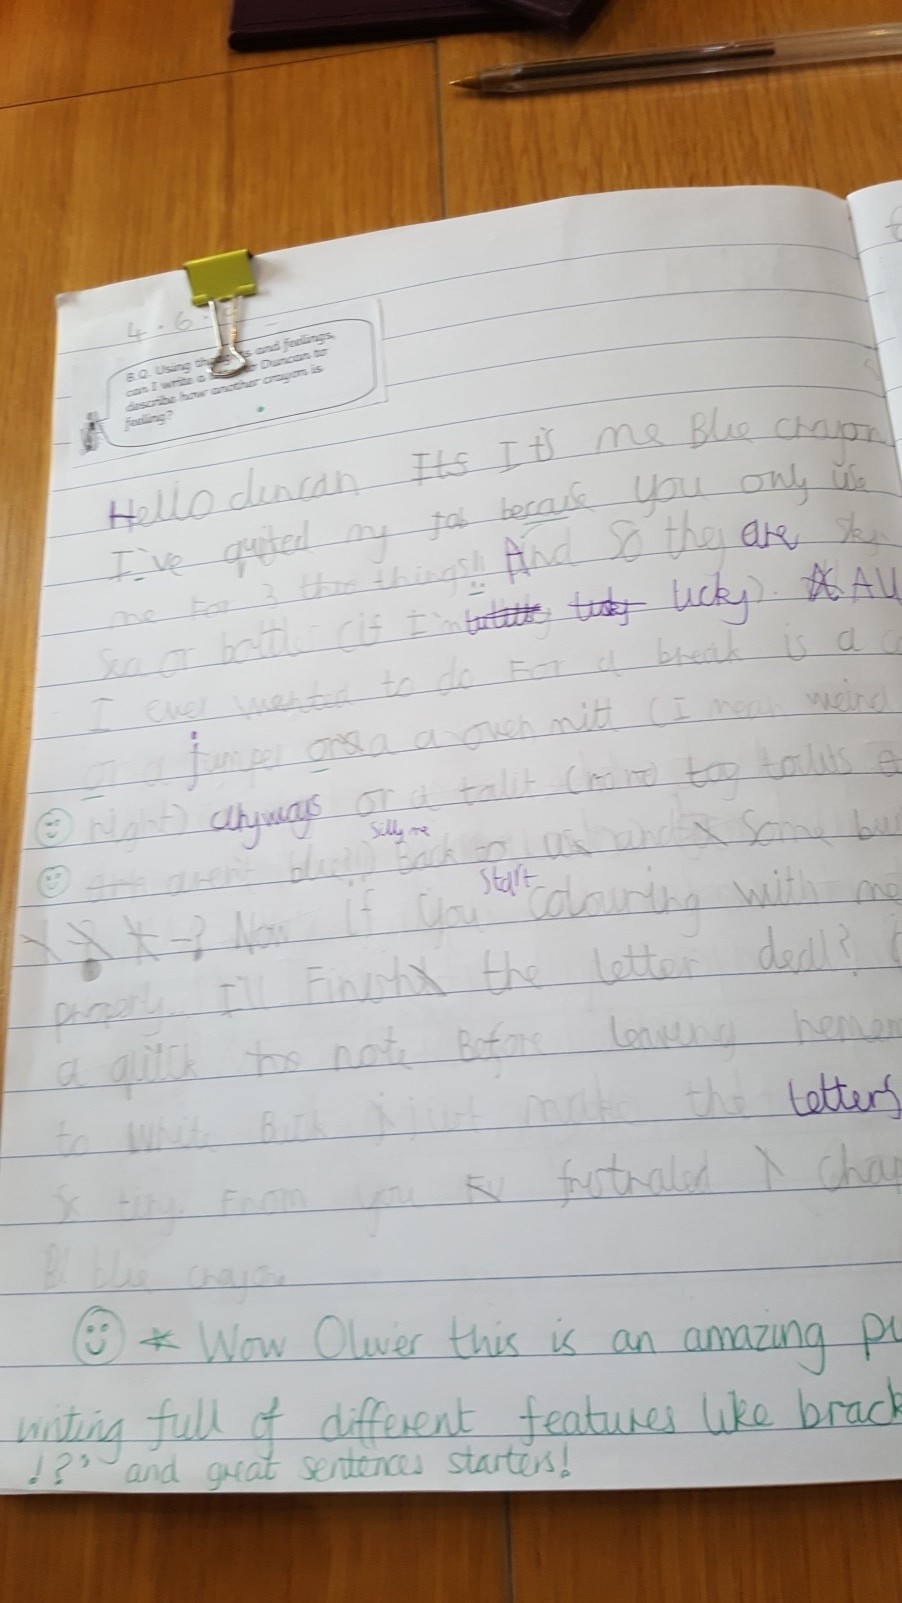 4.6.
B.Q. Using and feelings,
can I write a Duncan to
describe how another crayon is
feeling?
Hello duncan Its It's me Blue crayon
I've quited my job because you only use
me For 3 three things!! And So they are sky
Sea or bottles (if I'm lucky). All
I ever wanted to do For a break is a
or a jumper or a a oven mitt (I mean weird
right) anyways or a
silly me
aren't blue!!) Back to and some
start
Now If you colouring with me
properly I'll Finish the letter deal?
a quick note Before leaving
to write Back just make the letters
tiny. From you frustrated
Bl blue crayon
* Wow Oliver this is an amazing
writing full of different features like brack
!?' and great sentences starters!